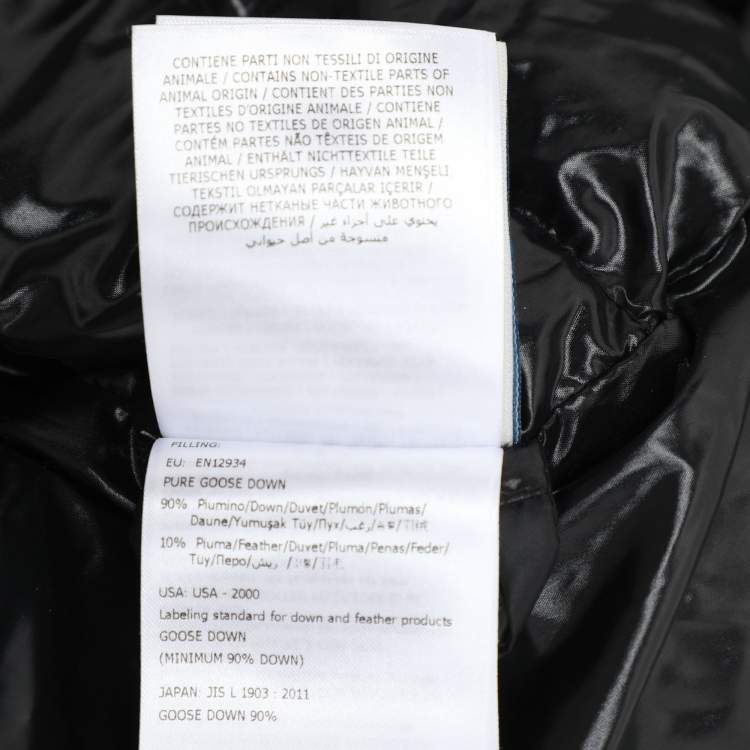 CONTIENE PARTI NON TESSILI DI ORIGINE
ANIMALE / CONTAINS NON-TEXTILE PARTS OF
ANIMAL ORIGIN / CONTIENT DES PARTIES NON
TEXTILES D'ORIGINE ANIMALE / CONTIENE
PARTES NO TEXTILES DE ORIGEN ANIMAL /
CONTÉM PARTES NÃO TÊXTEIS DE ORIGEM
ANIMAL / ENTHÄLT NICHTTEXTILE TEILE
TIERISCHEN URSPRUNGS / HAYVAN MENŞELİ
TEKSTİL OLMAYAN PARÇALAR İÇERİR /
СОДЕРЖИТ НЕТКАНЫЕ ЧАСТИ ЖИВОТНОГО
ПРОИСХОЖДЕНИЯ / يحتوي على أجزاء غير
منسوجة من أصل حيواني
FILLING:
EU: EN12934
PURE GOOSE DOWN
90% Piumino/Down/Duvet/Plumón/Plumas/
Daune/Yumuşak Tüy/Пух/زغب/
10% Piuma/Feather/Duvet/Pluma/Penas/Feder/
Tüy/Перо/ريش/
USA: USA - 2000
Labeling standard for down and feather products
GOOSE DOWN
(MINIMUM 90% DOWN)
JAPAN: JIS L 1903 : 2011
GOOSE DOWN 90%